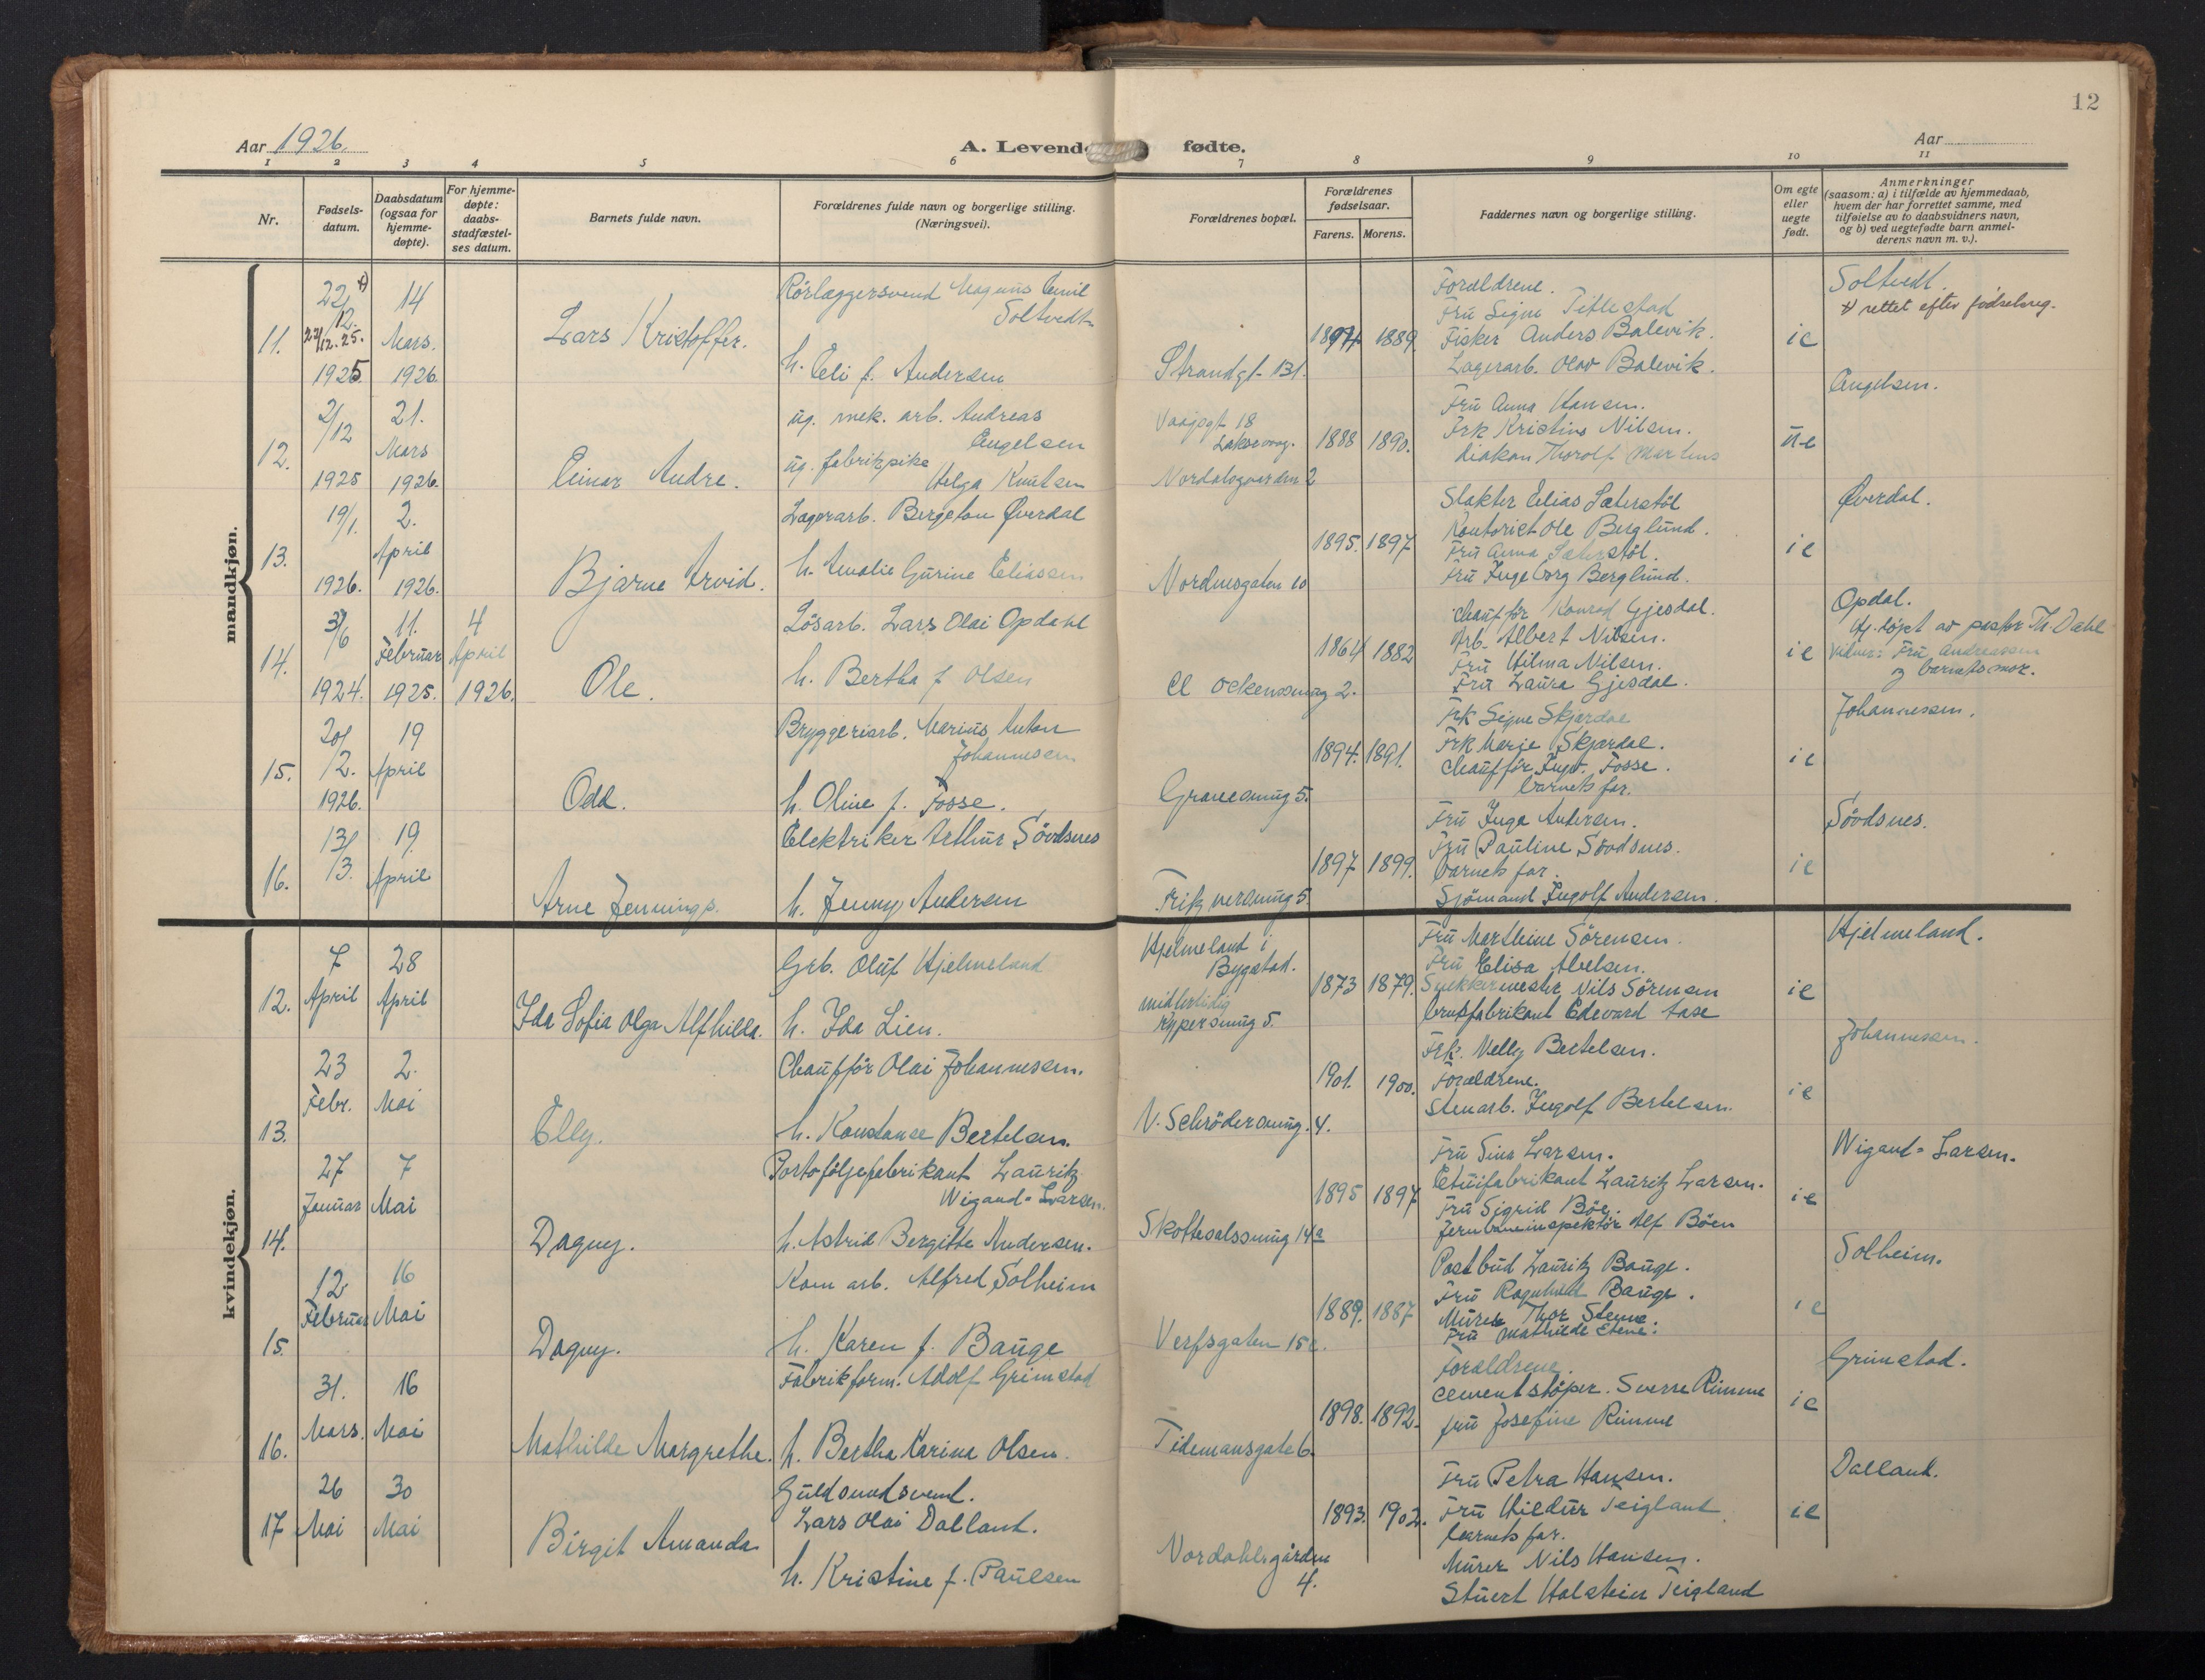 12
Aar 1926.
A. Levende fødte.
Aar
1 2 3 4 5 6 7 8 9 10 11
Nr.
Fødsels-
datum.
Daabsdatum
(ogsaa for
hjemme-
døpte).
For hjemme-
døpte:
daabs-
stadfæstel-
ses datum.
Barnets fulde navn.
Forældrenes fulde navn og borgerlige stilling.
(Næringsvei).
Forældrenes bopæl.
Forældrenes
fødselsaar.
Farens. Morens.
Faddernes navn og borgerlige stilling.
Om egte
eller
uegte
født.
Anmerkninger
(saasom: a) i tilfælde av hjemmedaab,
hvem der har forrettet samme, med
tilføielse av to daabsvidners navn,
og b) ved uegtefødte barn anmel-
derens navn m. v.).
mandkjøn.
11.
22/12.
22/12.25.
1925
14
Mars.
1926.
Lars Kristoffer.
Rörlæggersvend Magnus Emil
Soltvedt
h. Eli f. Andersen
Strandgt 131.
1894 1889.
Forældrene.
Fru Signe Titlestad
Fisker Anders Balevik.
Lagerarb. Olav Balevik.
ie
Soltvedt.
x) rettet efter födselsreg.
12.
2/12
1925
21.
Mars
1926.
Einar Andre.
ug. mek. arb. Andreas
Engelsen
ug. fabrikpike
Helga Knutsen
Vaagsgt 18
Laksevaag.
Nordalsgaarden 2
1888 1890.
Fru Anna Hansen.
Frk Kristine Nilsen.
diakon Thorolf Martens
u-e
Engelsen.
13.
19/1.
1926.
2.
April
1926.
Bjarne Arvid.
Lagerarb. Bergeton Øverdal
h. Amalie Gurine Eliassen
Nordnesgaten 10
1895. 1897
Slakter Elias Sæterstöl
Kontorist Ole Berglund.
Fru Anna Sæterstöl.
Fru Ingeborg Berglund.
ie
Øverdal.
14.
3/6
1924.
11.
Februar
1925.
4
April
1926.
Ole.
Lösarb. Lars Olai Opdahl
h. Bertha f Olsen
Cl Ockensmug 2.
1864 1882
Chaufför Konrad Gjesdal.
Arb. Albert Nilsen.
Fru Hilma Nilsen.
Fru Laura Gjesdal.
ie
Opdal.
Hj. döpt av pastor Th. Dahl
vidner: Fru Andreassen
og barnets mor.
15.
20/2.
1926.
19
April
Odd.
Bryggeriarb. Marius Anton
Johannesen
h. Oline f. Fosse.
Gravesmug 5.
1894. 1891.
Frk Signe Skjærdal
Frk Marie Skjærdal.
Chaufför Ingv. Fosse.
barnets far.
ie
Johannessen.
16.
13/3.
19
April
Arne Jennings.
Elektriker Arthur Sövdsnes
h. Jenny Andersen
Fritznersmug 5.
1897 1899.
Fru Inga Andersen.
Fru Pauline Sövdsnes.
barnets far.
Sjömand Ingolf Andersen.
ie
Sövdsnes.
kvindekjøn.
12.
7
April
28
April
Ida Sofia Olga Alfhilda.
Grb. Oluf Hjelmeland
h. Ida Lien.
Hjelmeland i
Bygstad.
midlertidig
Rypersmug 5.
1873 1879.
Fru Marthine Sörensen.
Fru Elisa Abelsen.
Snekkermester Nils Sörensen
brusfabrikant Edevard Aase
ie
Hjelmeland.
13.
23
Febr.
2.
Mai
Elly.
Chauffør Olai Johannessen.
h. Konstanse Bertelsen.
N. Schrödersmug. 4.
1901. 1900.
Frk. Nelly Bertelsen.
Forældrene.
Stenarb. Ingolf Bertelsen.
ie
Johannessen.
14.
27
Januar
7
Mai
Dagny.
Portofölgefabrikant Lauritz
Wigand-Larsen.
h. Astrid Bergitte Andersen.
Skottesalssmug 14a
1895 1897
Fru Sina Larsen.
Etuifabrikant Lauritz Larsen.
Fru Sigrid Böe.
Jernbaneinspektör Alf Böen
ie
Wigand-Larsen.
15.
12
Februar
16
Mai
Dagny.
Kom arb. Alfred Solheim
h. Karen f. Bauge
Verfsgaten 15c.
1889. 1887
Postbud Lauritz Bauge.
Fru Ragnhild Bauge.
Murer Thor Stene.
Fru Mathilde Stene.
ie
Solheim.
16.
31.
Mars.
16
Mai
Mathilde Margrethe.
Fabrikform. Adolf Grimstad
h. Bertha Karina Olsen.
Tidemansgate 6.
1898. 1892.
Forældrene.
Cementstøper. Sverre Rimme
fru Josefine Rimme
ie
Grimstad.
17
26
Mai
30
Mai
Birgit Amanda
Guldsmedsvend.
Lars Olai Dalland.
h. Kristine f. Paulsen
Nordahlsgården
4.
1893. 1902.
Fru Petra Hansen.
Fru Hildur Teigland.
barnets far.
Murer Nils Hansen.
Stuert Holstein Teigland
ie
Dalland.